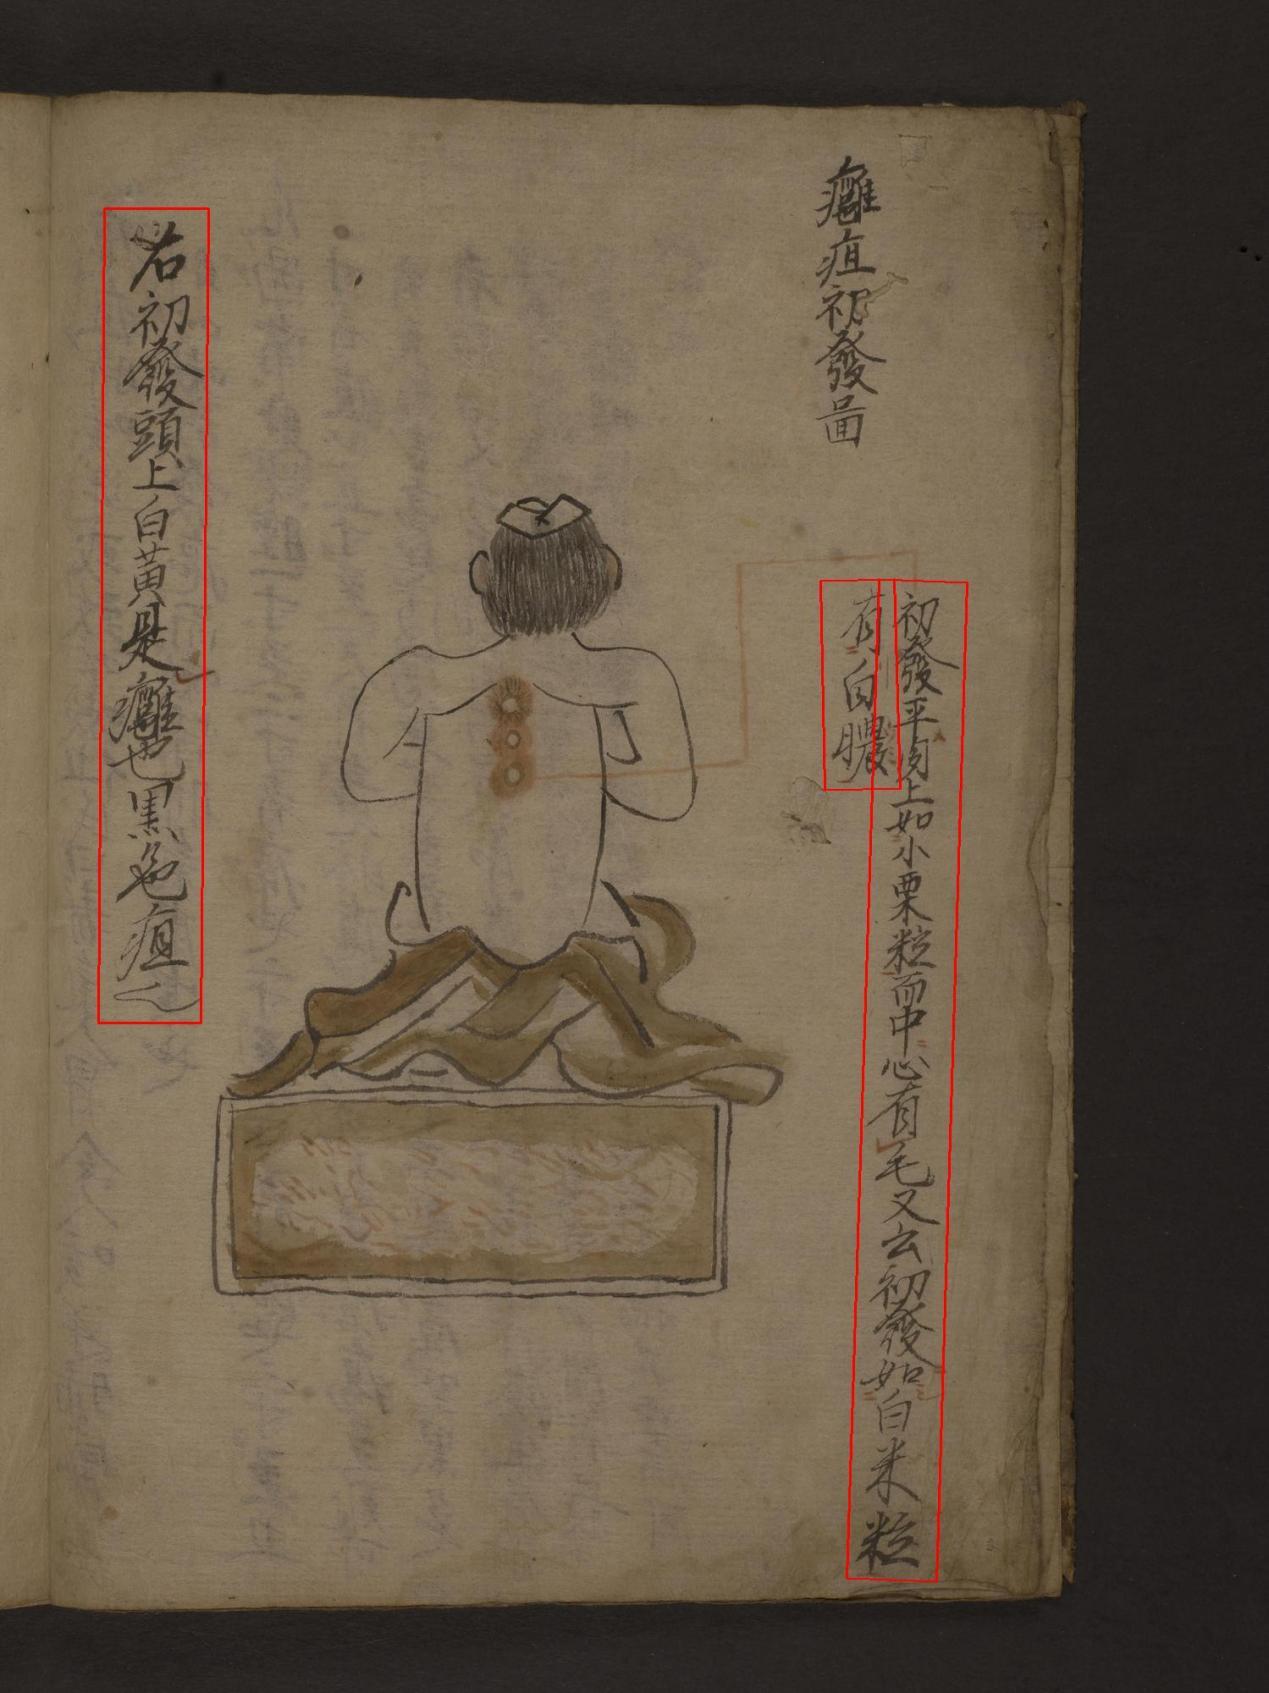 癰疽初發啚
初發平肉上如小粟粒而中心有毛又云初發如白米粒
有白膿
若初發頭上白黄是癰也黒色疽也